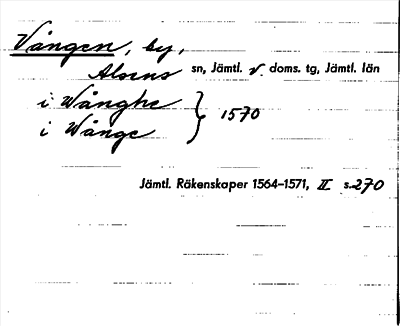 Vången, by,
Alsens sn, Jämtl. v. doms. tg, Jämtl. län
i Wånghe } 1570
i Wånge
Jämtl. Räkenskaper 1564–1571, II s.270